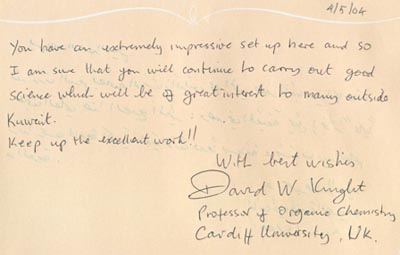 4/5/04
You have an extremely impressive set up here and so
I am sure that you will continue to carry out good
science which will be of great interest to many outside
Kuwait.
Keep up the excellent work!!
With best wishes
David W. Knight
Professor of Organic Chemistry
Cardiff University, UK.